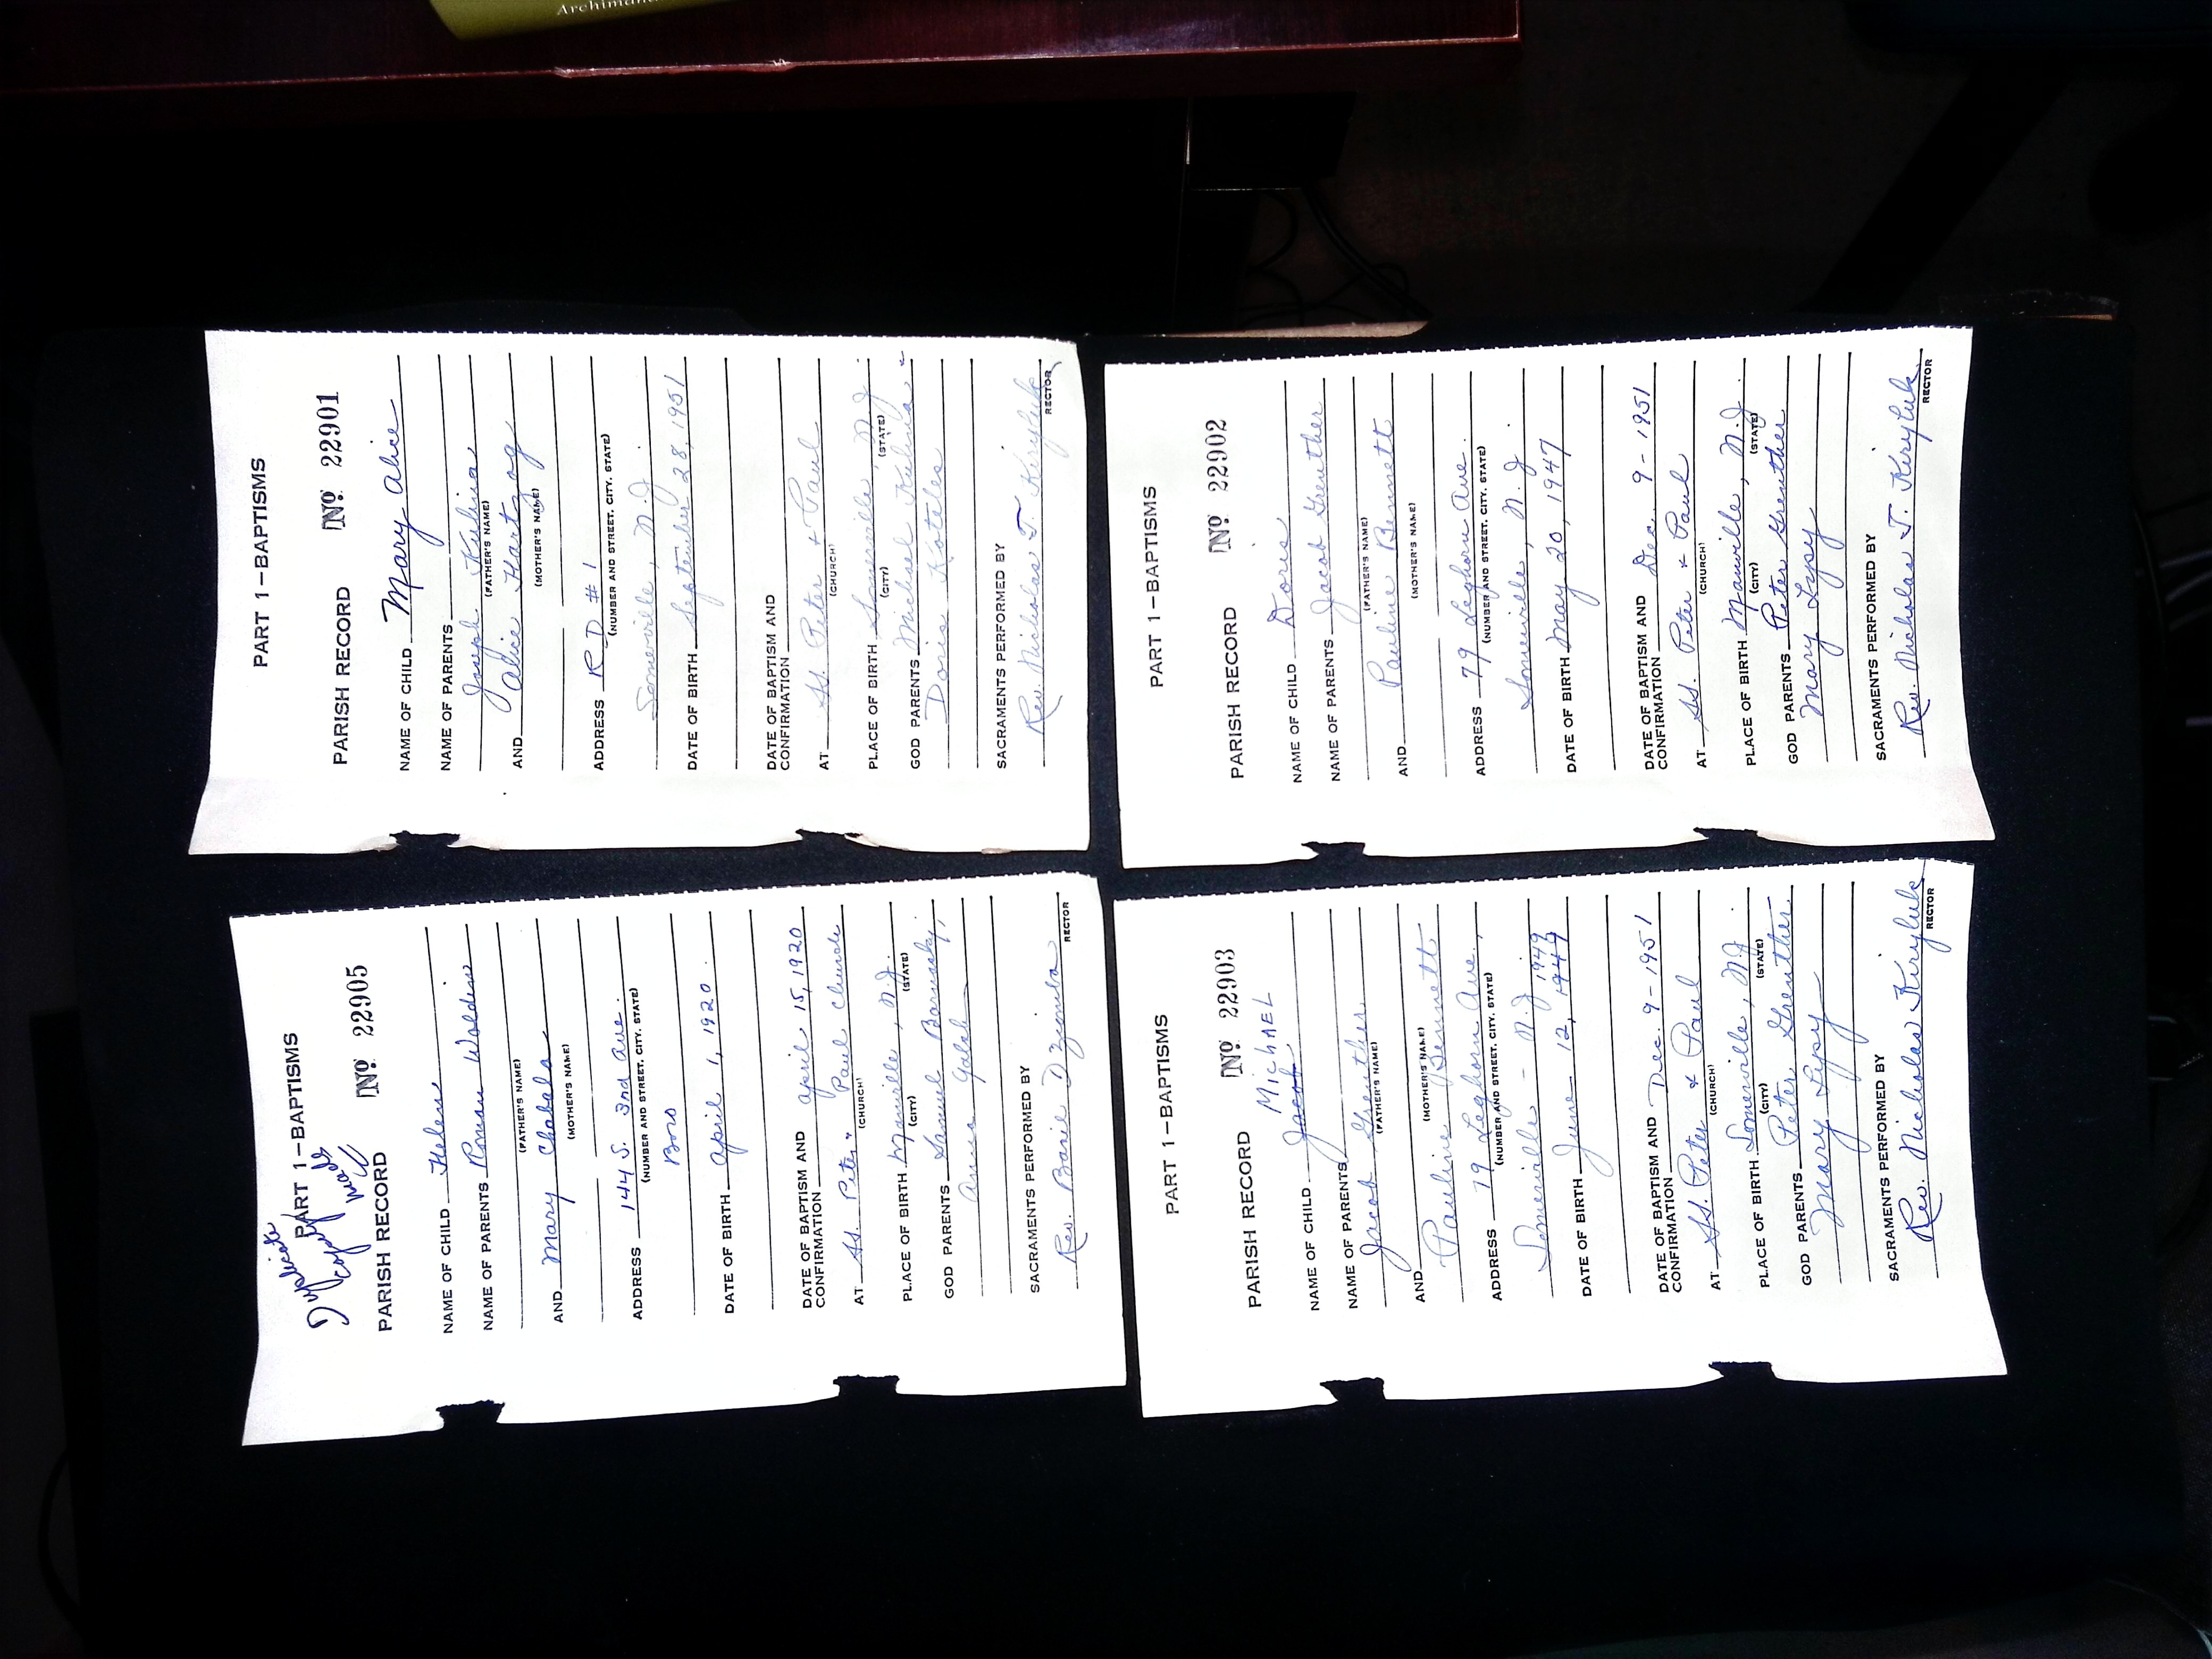 Duplicate
copy
made
PART 1-BAPTISMS
PARISH RECORD No 22905
NAME OF CHILD Helen
NAME OF PARENTS Roman Woldin
(FATHER'S NAME)
AND Mary Chabala
(MOTHER'S NAME)
ADDRESS 144 S. 3rd Ave.
(NUMBER AND STREET, CITY, STATE)
Boro
DATE OF BIRTH April 1, 1920
DATE OF BAPTISM AND April 15, 1920
CONFIRMATION
AT SS. Peter & Paul Church
(CHURCH)
PLACE OF BIRTH Manville, N.J.
(CITY) (STATE)
GOD PARENTS Samuel Barnasky,
Anna
SACRAMENTS PERFORMED BY
Rev. Basil Dziomba
RECTOR
PART 1-BAPTISMS
PARISH RECORD No 22901
NAME OF CHILD Mary Alice
NAME OF PARENTS
Joseph Kulina
(FATHER'S NAME)
AND Alice Hartzog
(MOTHER'S NAME)
ADDRESS R D # 1
(NUMBER AND STREET, CITY, STATE)
Somerville, N.J.
DATE OF BIRTH September 28, 1951
DATE OF BAPTISM AND
CONFIRMATION
AT SS. Peter & Paul
(CHURCH)
PLACE OF BIRTH Somerville, N.J.
(CITY) (STATE)
GOD PARENTS Michael Kulina &
Doris Koteles
SACRAMENTS PERFORMED BY
Rev. Nicholas T. Kiryluk
RECTOR
PART 1-BAPTISMS
PARISH RECORD No 22903
MICHAEL
NAME OF CHILD Jacob
NAME OF PARENTS
Jacob Greuther
(FATHER'S NAME)
AND
(MOTHER'S NAME)
Pauline Bennett
ADDRESS 79 Leghorn Ave.,
(NUMBER AND STREET, CITY, STATE)
Somerville - N.J.
1949
DATE OF BIRTH June 12, 1947
DATE OF BAPTISM AND Dec. 9-1951
CONFIRMATION
AT SS. Peter & Paul
(CHURCH)
PLACE OF BIRTH Somerville, N.J.
(CITY) (STATE)
GOD PARENTS Peter Greuther
Mary Lypy
SACRAMENTS PERFORMED BY
Rev. Nicholas Kiryluk
RECTOR
PART 1-BAPTISMS
PARISH RECORD No 22902
NAME OF CHILD Doris
NAME OF PARENTS Jacob Greuther
(FATHER'S NAME)
AND Pauline Bennett
(MOTHER'S NAME)
ADDRESS 79 Leghorn Ave.
(NUMBER AND STREET, CITY, STATE)
Somerville, N.J.
DATE OF BIRTH May 20, 1947
DATE OF BAPTISM AND Dec. 9-1951
CONFIRMATION
AT SS. Peter & Paul
(CHURCH)
PLACE OF BIRTH Manville, N.J.
(CITY) (STATE)
GOD PARENTS Peter Greuther
Mary Lypy
SACRAMENTS PERFORMED BY
Rev. Nicholas T. Kiryluk
RECTOR